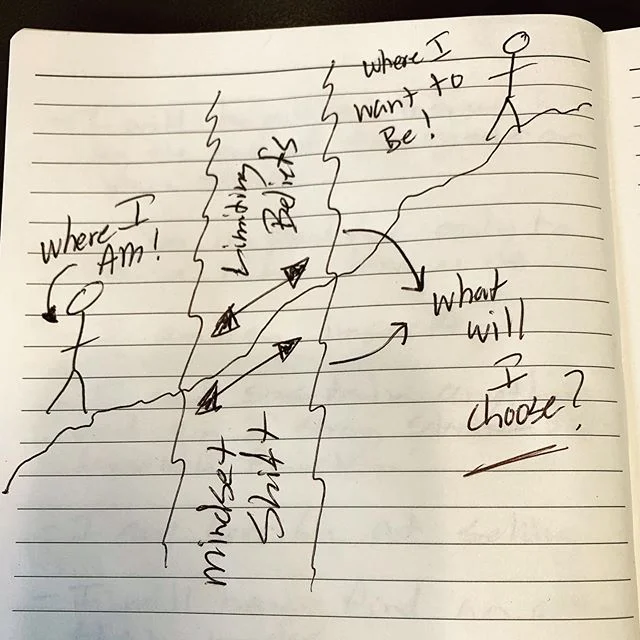 where I
want to
Be!
Limiting
Beliefs
where I
AM!
what
will
I
choose?
mindset
Shift